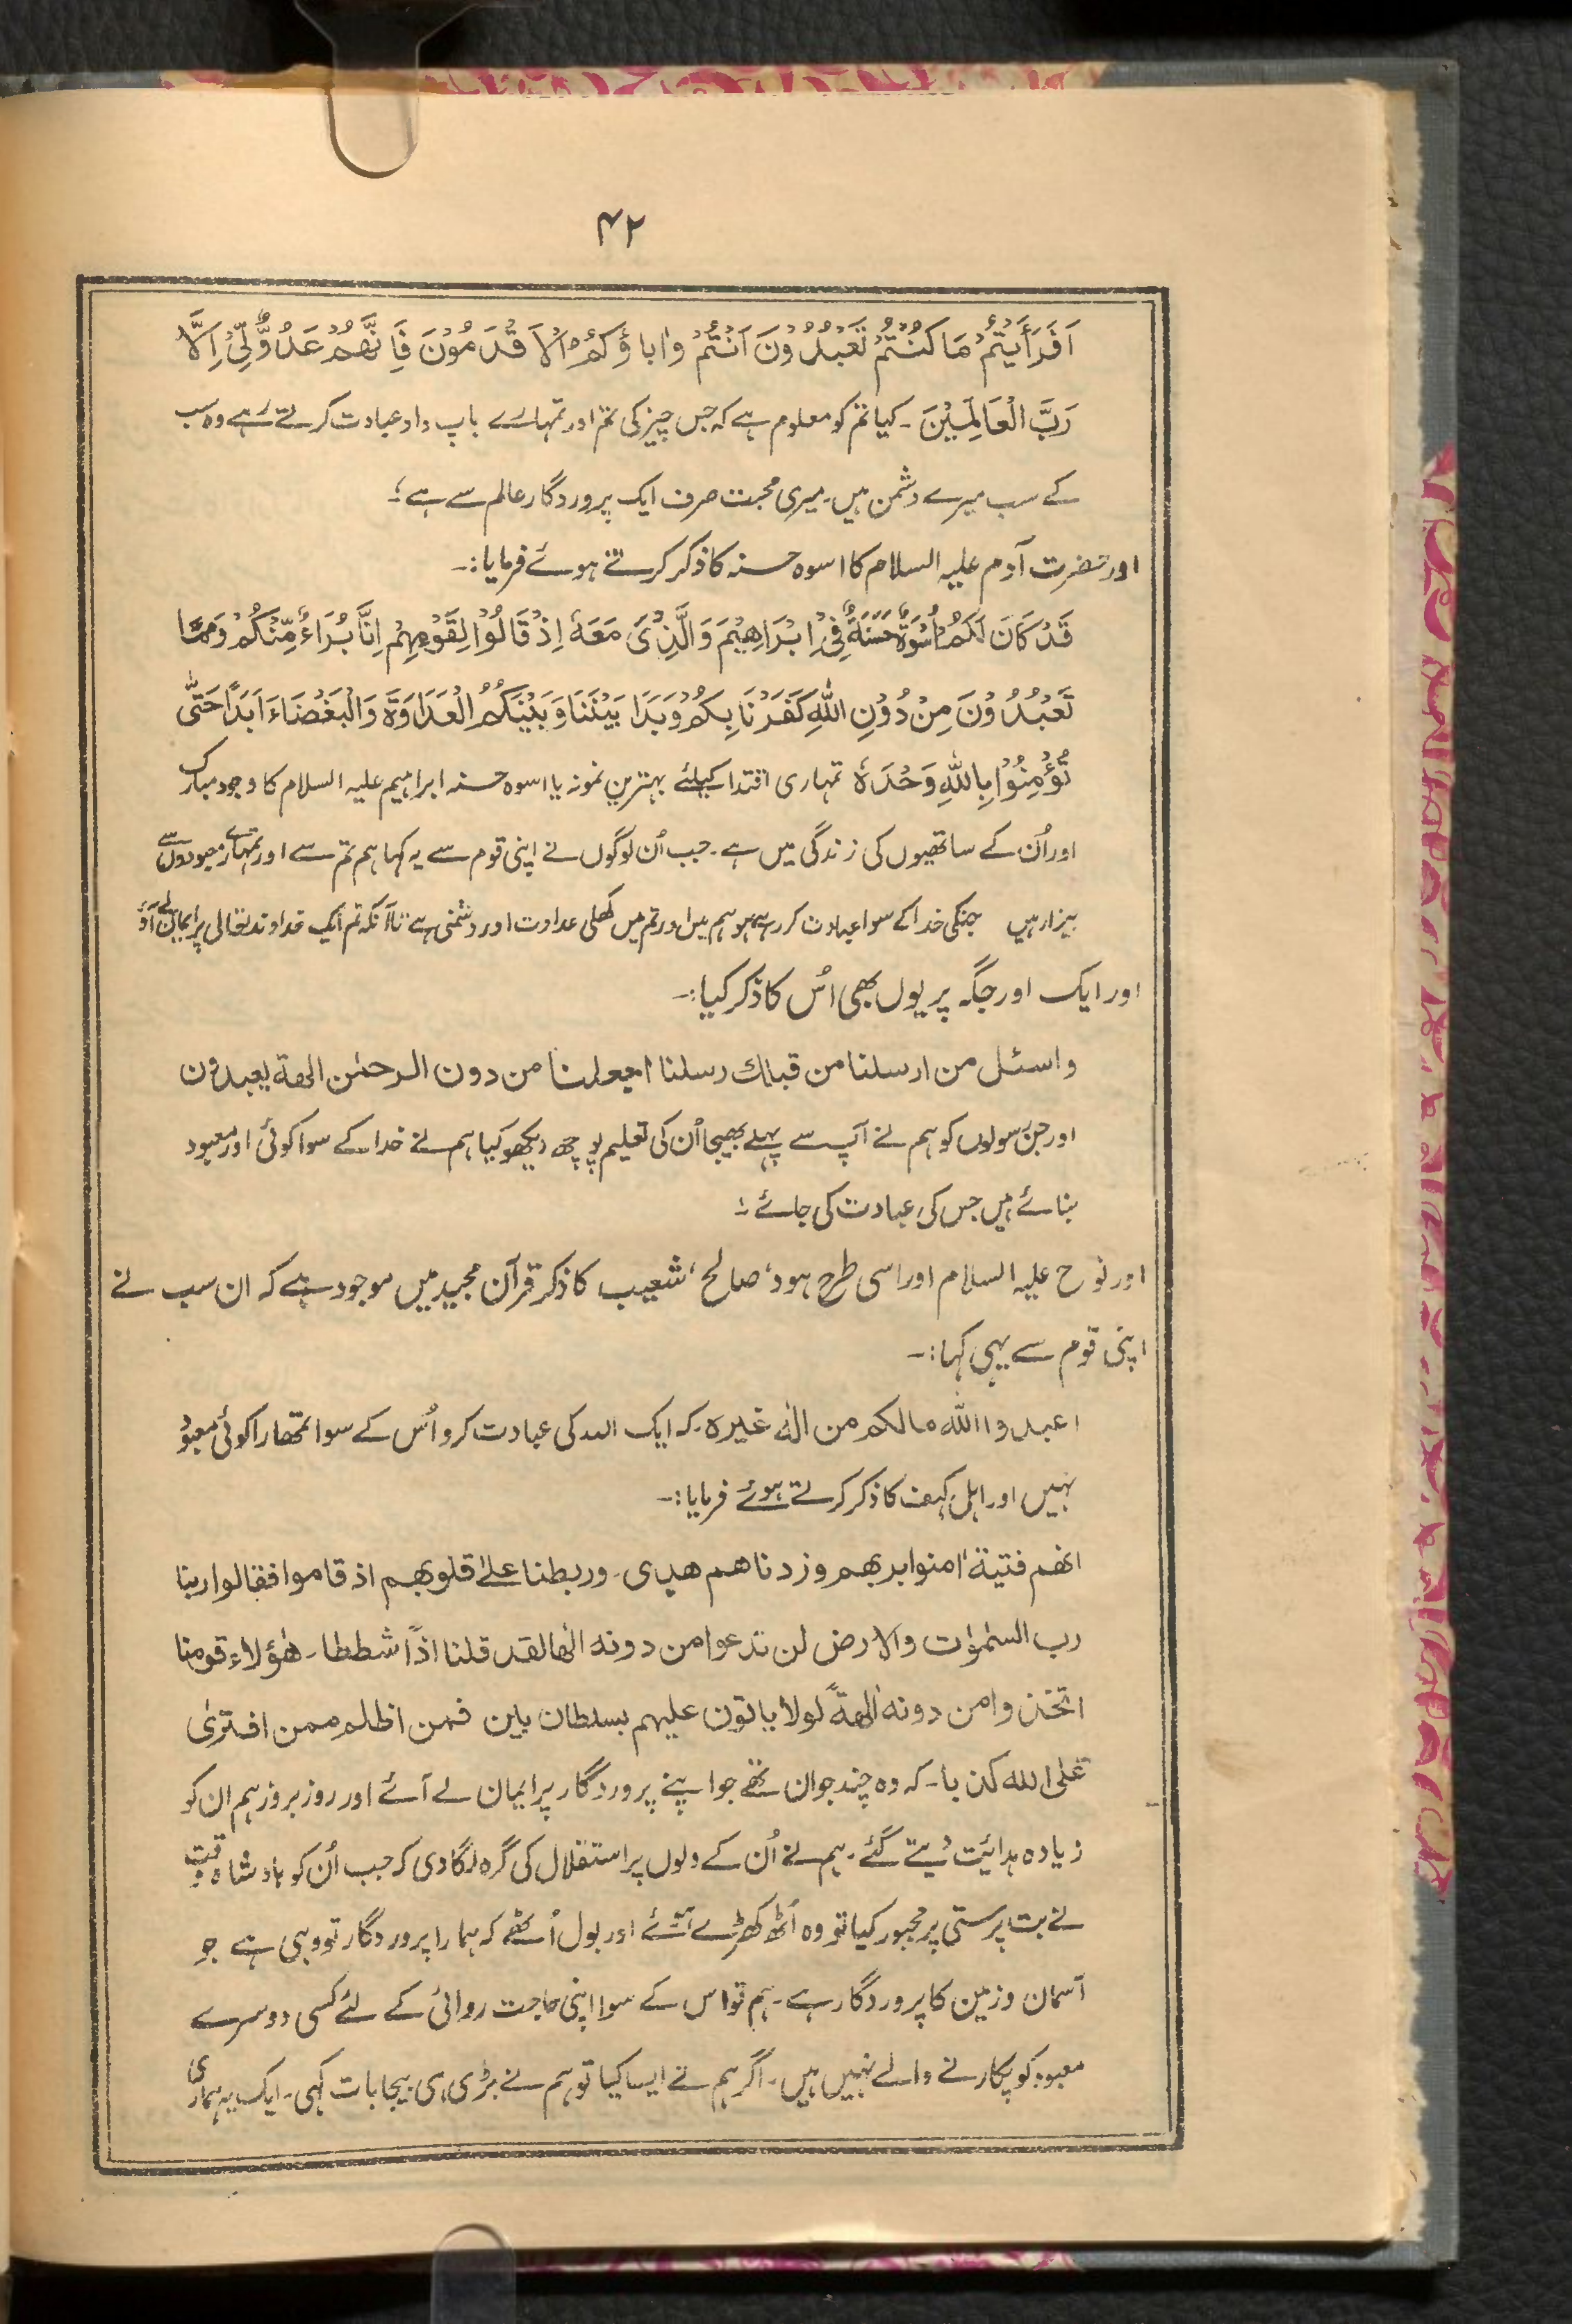 ۴۲
اَفَرَأَيْتُمْ مَا كُنْتُمْ تَعْبُدُوْنَ اَنْتُمْ وَاٰباؤُكُمْ الْاَقْدَمُوْنَ فَاِنَّهُمْ عَدُوٌّ لِّيْ اِلَّا
رَبَّ الْعَالَمِيْنَ ۔ کیا تم کو معلوم ہے کہ جس چیز کی تم اور تمہارے باپ دادا عبادت کرتے رہے وہ سب
کے سب میرے دشمن ہیں۔ میری محبت صرف ایک پروردگار عالم سے ہے ؛
اور حضرت آدم علیہ السلام کا اسوہ حسنہ کا ذکر کرتے ہوئے فرمایا:۔
قَدْ كَانَ لَكُمْ اُسْوَةٌ حَسَنَةٌ فِيْ اِبْرَاهِيْمَ وَالَّذِيْ مَعَهٗ اِذْ قَالُوْا لِقَوْمِهِمْ اِنَّا بُرَاءُ مِّنْكُمْ وَمِمَّا
تَعْبُدُوْنَ مِنْ دُوْنِ اللّٰهِ كَفَرْنَا بِكُمْ وَبَدَا بَيْنَنَا وَبَيْنَكُمُ الْعَدَاوَةَ وَالْبَغْضَاءَ اَبَدًا حَتّٰى
تُؤْمِنُوْا بِاللّٰهِ وَحْدَهٗ تمہاری اقتدا کیلئے بہترین نمونہ یا اسوہ حسنہ ابراہیم علیہ السلام کا وجود مبارک
اور اُن کے ساتھیوں کی زندگی میں ہے ۔ جب اُن لوگوں نے اپنی قوم سے یہ کہا ہم تم سے اور تمہارے معبودوں سے
بیزار ہیں جنکی خدا کے سوا عبادت کر رہے ہو ہم میں اور تم میں کھلی عداوت اور دشمنی ہے تاآنکہ تم ایک خداوند تعالی پر ایمان لے آؤ
اور ایک اور جگہ پر یوں بھی اُس کا ذکر کیا:۔
واسئل من ارسلنا من قبلك رسلنا اجعلنا من دون الرحمٰن الهة يعبدون
اور جن رسولوں کو ہم نے آپ سے پہلے بھیجا اُن کی تعلیم پوچھ دیکھو کیا ہم نے خدا کے سوا کوئی اور معبود
بنائے ہیں جس کی عبادت کی جائے ؛
اور نوح علیہ السلام اور اسی طرح ہود، صالح، شعیب کا ذکر قرآن مجید میں موجود ہے کہ ان سب نے
اپنی قوم سے یہی کہا:۔
اعبدوا اللّٰه مالكم من الٰه غيره ۔ کہ ایک اللہ کی عبادت کرو اُس کے سوا تمھارا کوئی معبود
نہیں اور اہل کہف کا ذکر کرتے ہوئے فرمایا:۔
انهم فتية اٰمنوا بربهم وزدناهم هدى ۔ وربطنا علىٰ قلوبهم اذ قاموا فقالوا ربنا
رب السمٰوٰت والارض لن ندعوا من دونه الٰها لقد قلنا اذًا شططا ۔ هٰؤلاء قومنا
اتخذوا من دونه اٰلهةً لولا ياتون عليهم بسلطان بين فمن اظلم ممن افترىٰ
على الله كذبا ۔ کہ وہ چند جوان تھے جو اپنے پروردگار پر ایمان لے آئے اور روز بروز ہم ان کو
زیادہ ہدائیت دیتے گئے ۔ ہم نے اُن کے دلوں پر استقلال کی گرہ لگا دی کہ جب اُن کو بادشاہ وقت
نے بت پرستی پر مجبور کیا تو وہ اُٹھ کھڑے ہوئے اور بول اُٹھے کہ ہمارا پروردگار تو وہی ہے جو
آسمان و زمین کا پروردگار ہے ۔ ہم تو اس کے سوا اپنی حاجت روائی کے لئے کسی دوسرے
معبود کو پکارنے والے نہیں ہیں ۔ اگر ہم نے ایسا کیا تو ہم نے بڑی ہی بیجا بات کہی ۔ ایک یہ ہماری